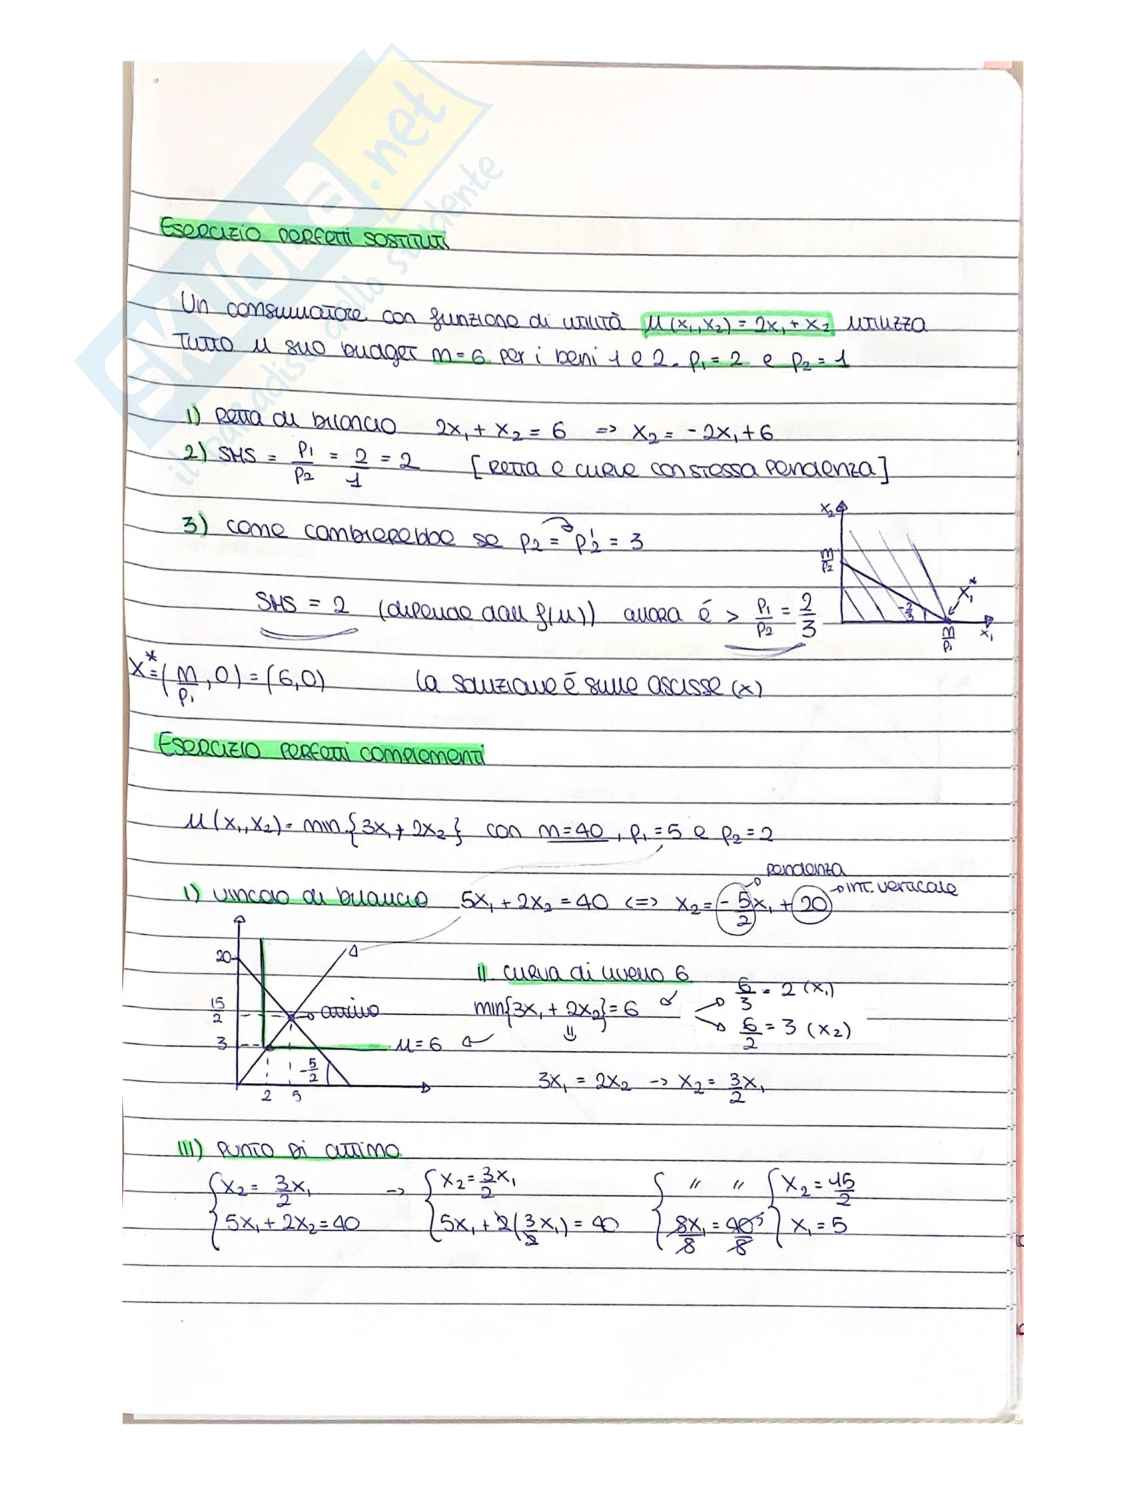 SKUOLA.net
il paradiso dello studente
Esercizio perfetti sostituti
Un consumatore con funzione di utilità u(x₁,x₂) = 2x₁ + x₂ utilizza
tutto il suo budget m=6 per i beni 1 e 2. p₁=2 e p₂=1
1) retta di bilancio 2x₁ + x₂ = 6 => x₂ = -2x₁+6
2) SMS = p₁/p₂ = 2/1 = 2 [retta e curve con stessa pendenza]
3) come cambierebbe se p₂ = p₂' = 3
x₂
m/p₂
x₁*
-2/3
m/p₁
x₁
SMS = 2 (dipende dall f(u)) allora é > p₁/p₂ = 2/3
x* = (m/p₁, 0) = (6,0) la soluzione é sulle ascisse (x)
Esercizio perfetti complementi
u(x₁,x₂) = min{3x₁, 2x₂} con m=40, p₁=5 e p₂=2
pendenza
I) vincolo di bilancio 5x₁ + 2x₂ = 40 <=> x₂ = -5/2x₁ + 20
int. verticale
20
15/2
3
ottimo
u=6
-5/2
2 5
II curva di livello 6
min{3x₁, 2x₂} = 6
6/3 = 2 (x₁)
6/2 = 3 (x₂)
3x₁ = 2x₂ → x₂ = 3/2x₁
III) punto di ottimo
{x₂ = 3/2x₁ → {x₂ = 3/2x₁ { " " {x₂ = 15/2
{5x₁ + 2x₂ = 40 {5x₁ + 2(3/2x₁) = 40 {8x₁/8 = 40/8 5 {x₁ = 5